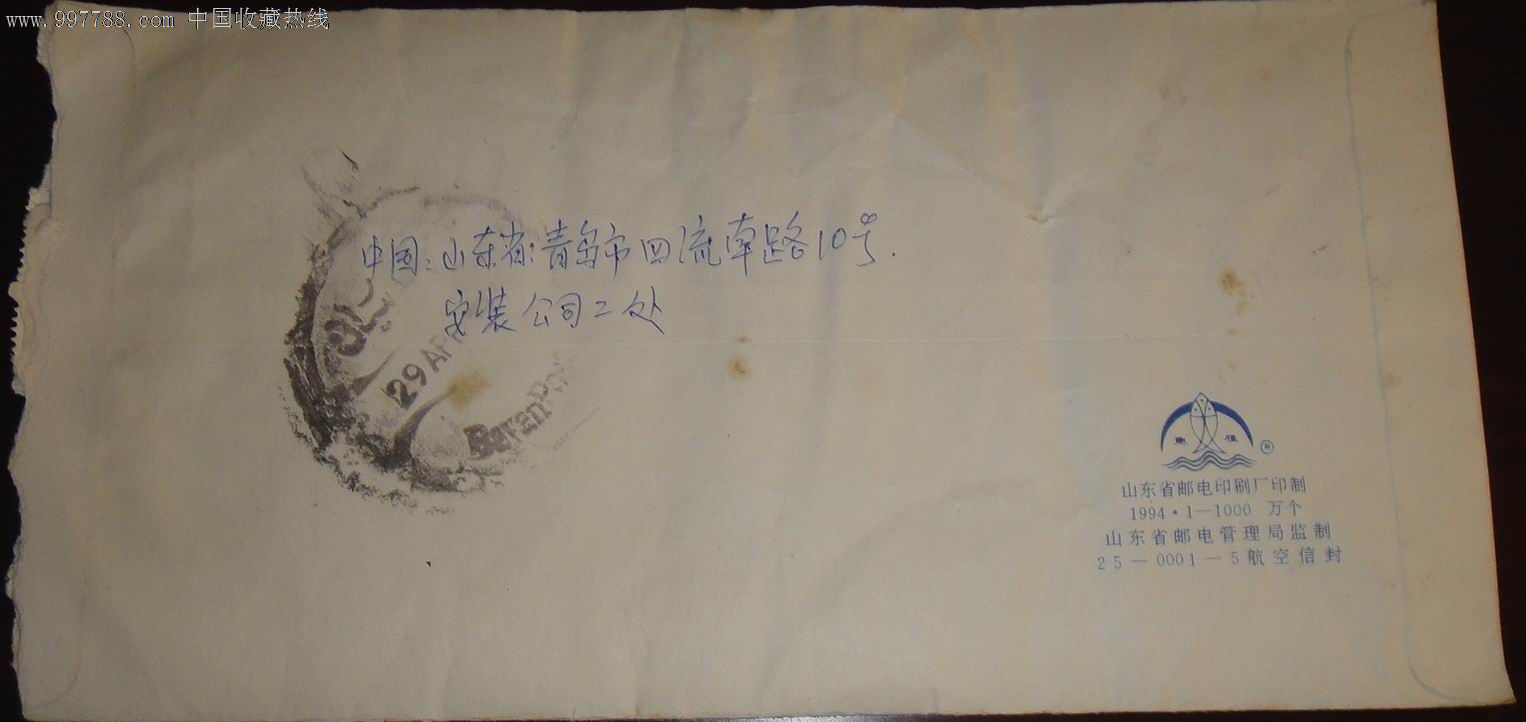 www.997788.com 中国收藏热线
中国:山东省:青岛市四流南路10号.
安装公司二处
29 APR
®
山东省邮电印刷厂印制
1994·1—1000 万个
山东省邮电管理局监制
25—0001—5航空信封